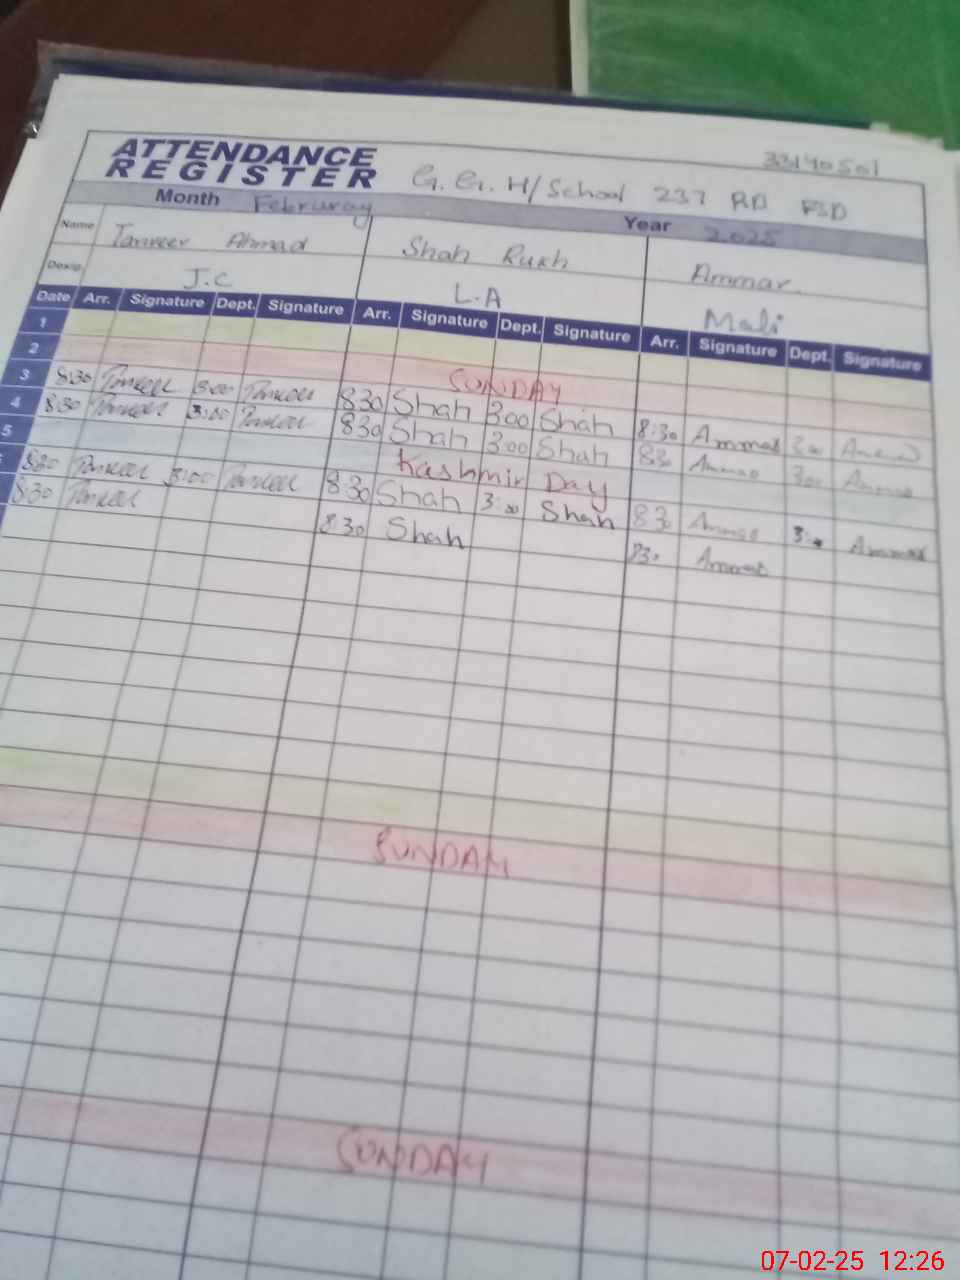 ATTENDANCE
REGISTER
33140501
G. G. H/School 237 RB FSD
Month Februray Year 2025
Name Tanveer Ahmad Shah Rukh Ammar
Desig. J.C L.A Mali
Date Arr. Signature Dept. Signature Arr. Signature Dept. Signature Arr. Signature Dept. Signature
1
2 SUNDAY
3 8:30 Tanveer 3:00 Tanveer 830 Shah 300 Shah 8:30 Ammar 300 Ammar
4 8:30 Tanveer 3:00 Tanveer 830 Shah 300 Shah 830 Ammar 300 Ammar
5 Kashmir Day
8:30 Tanveer 3:00 Tanveer 830 Shah 3:00 Shah 830 Ammar 3:00 Ammar
8:30 Tanveer 830 Shah 830 Ammar
SUNDAY
SUNDAY
07-02-25 12:26